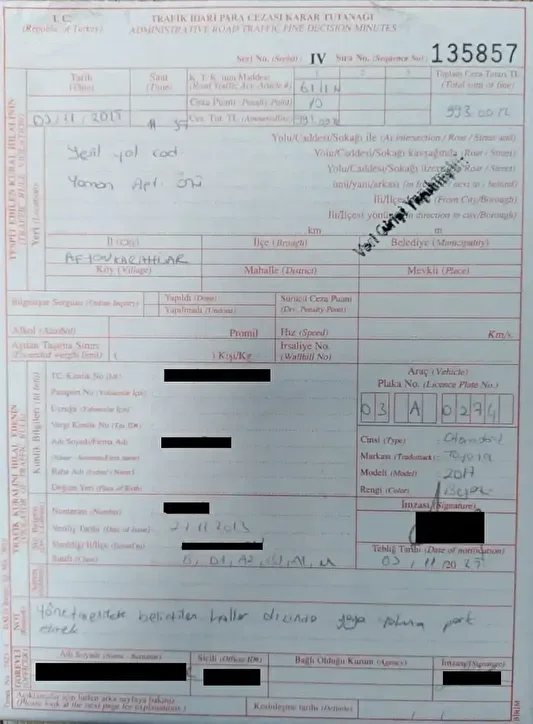 T. C. TRAFİK İDARİ PARA CEZASI KARAR TUTANAĞI
(Republic of Turkey) ADMINISTRATIVE ROAD TRAFFIC FINE DECISION MINUTES
Seri No. (Serial) IV Sıra No. (Sequence No) 135857
Tarih (Date) Saat (Time) K. T. K.'nun Maddesi 1 2 3 Toplam Ceza Tutarı TL
(Road Traffic Act Article #) 61/1 (Total sum of fine)
Ceza Puanı (Penalty Point) 10
03/11/2023 37 993.00
TESPİT EDİLEN KURAL İHLALİNİN
(TRAFFIC RULE VIOLATION)
Yeri (Location)
Yolu/Caddesi/Sokağı ile (At intersection / Roar / Street and)
Yeşil yol cad Yolu/Caddesi/Sokağı karşısında (Roar / Street)
Yolu/Caddesi/Sokağı üzeri (Roar / Street)
Apt. önü
İli/İlçe (From City/Borough)
Veri Girişi Yapılmıştır.
İli/İlçesi yönü (in direction to city/Borough)
km m
İl (City) İlçe (Brough) Belediye (Municipality)
AFYONKARAHİSAR
Köy (Village) Mahalle (District) Mevkii (Place)
Bilgisayar Sorgusu (Online Inquiry) Yapıldı (Done) Sürücü Ceza Puanı
Yapılmadı (Undone) (Drv. Penalty Point)
Alkol (Alcohol) Promil Hız (Speed) Km/s.
Aşılan Taşıma Sınırı ( ) Kişi/Kg İrsaliye No.
(Exceeded weight limit) (Waybill No)
Kimlik Bilgileri (Id Info)
T.C. Kimlik No (Id#) Araç (Vehicle)
Pasaport No. (Yabancılar İçin) Plaka No. (Licence Plate No.)
Uyruğu (Yabancılar İçin) 03 A 0274
Vergi Kimlik No (Tax ID#)
Adı Soyadı/Firma Adı Cinsi (Type) : Otomobil
(Name - Surname/Firm name) Markası (Trademark) : Toyota
Baba Adı (Father's Name) Modeli (Model) : 2017
Doğum Yeri (Place of Birth) Rengi (Color) :
Numarası (Number) İmzası (Signature)
Veriliş Tarihi (Date of Issue) 2013
Verildiği İl/İlçe (Issued in) Tebliğ Tarihi (Date of notification)
Sınıfı (Class) B, D1, A2, B1, A1, M 03, 11 /20 23
NOT Yönetmelikte belirtilen haller dışında yaya yoluna park
etmek
Adı Soyadı (Name - Surname) Sicili (Officer ID#) Bağlı Olduğu Kurum (Agency) İmzası (Signature)
Açıklamalar için lütfen arka sayfaya bakınız
(Please look at the next page for explanations.) Kesinleşme tarihi (Definite) / /